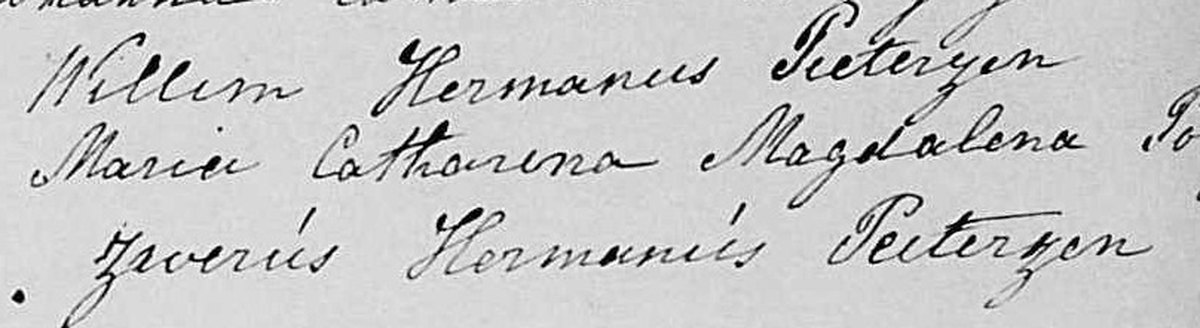 Willem Hermanus Pieterzen
Maria Catharina Magdalena
Zwerús Hermanús Pieterzen